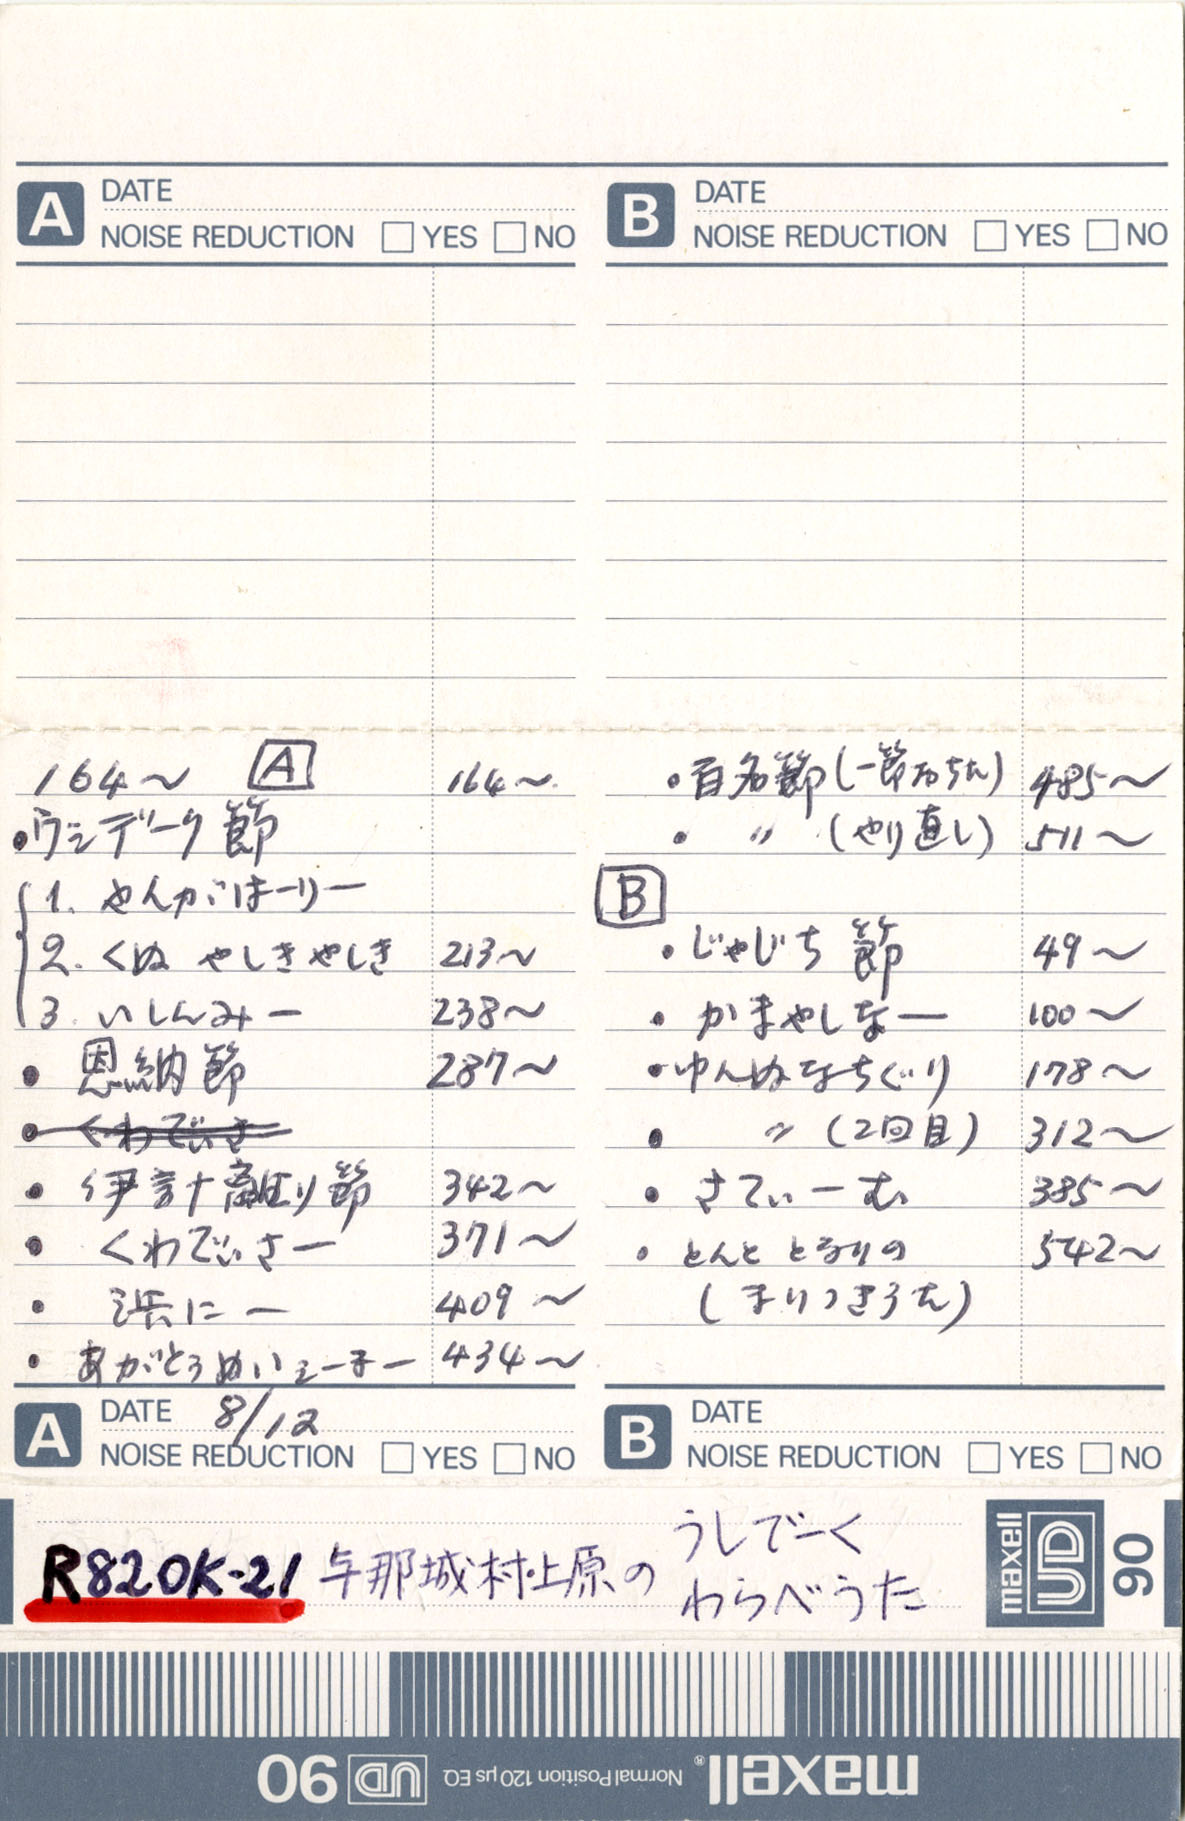 A DATE
NOISE REDUCTION □ YES □ NO
B DATE
NOISE REDUCTION □ YES □ NO
164〜 A 164〜
・ウシデーク節
1. やんがはーりー
2. くぬ やしきやしき 213〜
3. いしんみー 238〜
・恩納節 287〜
・くわでぃさ
・伊計離り節 342〜
・くわでぃさー 371〜
・浜にー 409〜
・あがとぅぬいェーまー 434〜
・百名節(一節おちた) 485〜
・〃(やり直し) 511〜
B
・じゃじち節 49〜
・かまやしなー 100〜
・ゆんぬなちぐり 178〜
・〃(2回目) 312〜
・さてぃーむ 385〜
・とんと となりの 542〜
(まりつきうた)
A DATE 8/12
NOISE REDUCTION □ YES □ NO
B DATE
NOISE REDUCTION □ YES □ NO
R820K-21 与那城村上原の
うしでーく
わらべうた
maxell UD 90
maxell® Normal Position 120 μs EQ UD 90